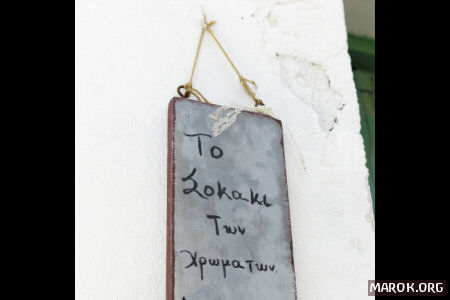 Το
Σοκακι
Των
Χρωματων
MAROK.ORG